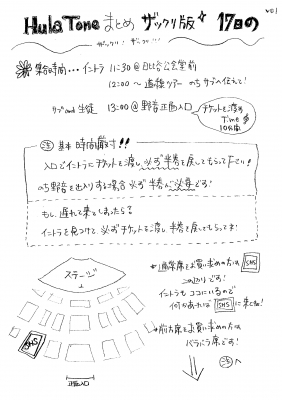 No.1
Hula Tone まとめ ザックリ版 17日の
ザックリ! ザック…
集合時間… イントラ 11:30@日比谷公会堂前
12:00〜 道後ツアー のちサブへ伝えて!
サブand生徒 13:00@野音正面入口
チケットを渡す
Time
10時間
注 基本 時間厳守!!
入口でイントラにチケットを渡し、必ず半券を戻してもらって下さい!
のち野音を出入りする場合 必ず半券が必要です!
もし、遅れて来てしまったら?
イントラを見つけて、必ずチケットを渡し 半券を戻してもらってネ!
ステージ
SMS
正面入口
通常席をお買い求めの方は SMS
この辺りです!
イントラもココにいるので
何かあれば SMS に来てね!
前方席をお買い求めの方は
バラバラ席です!